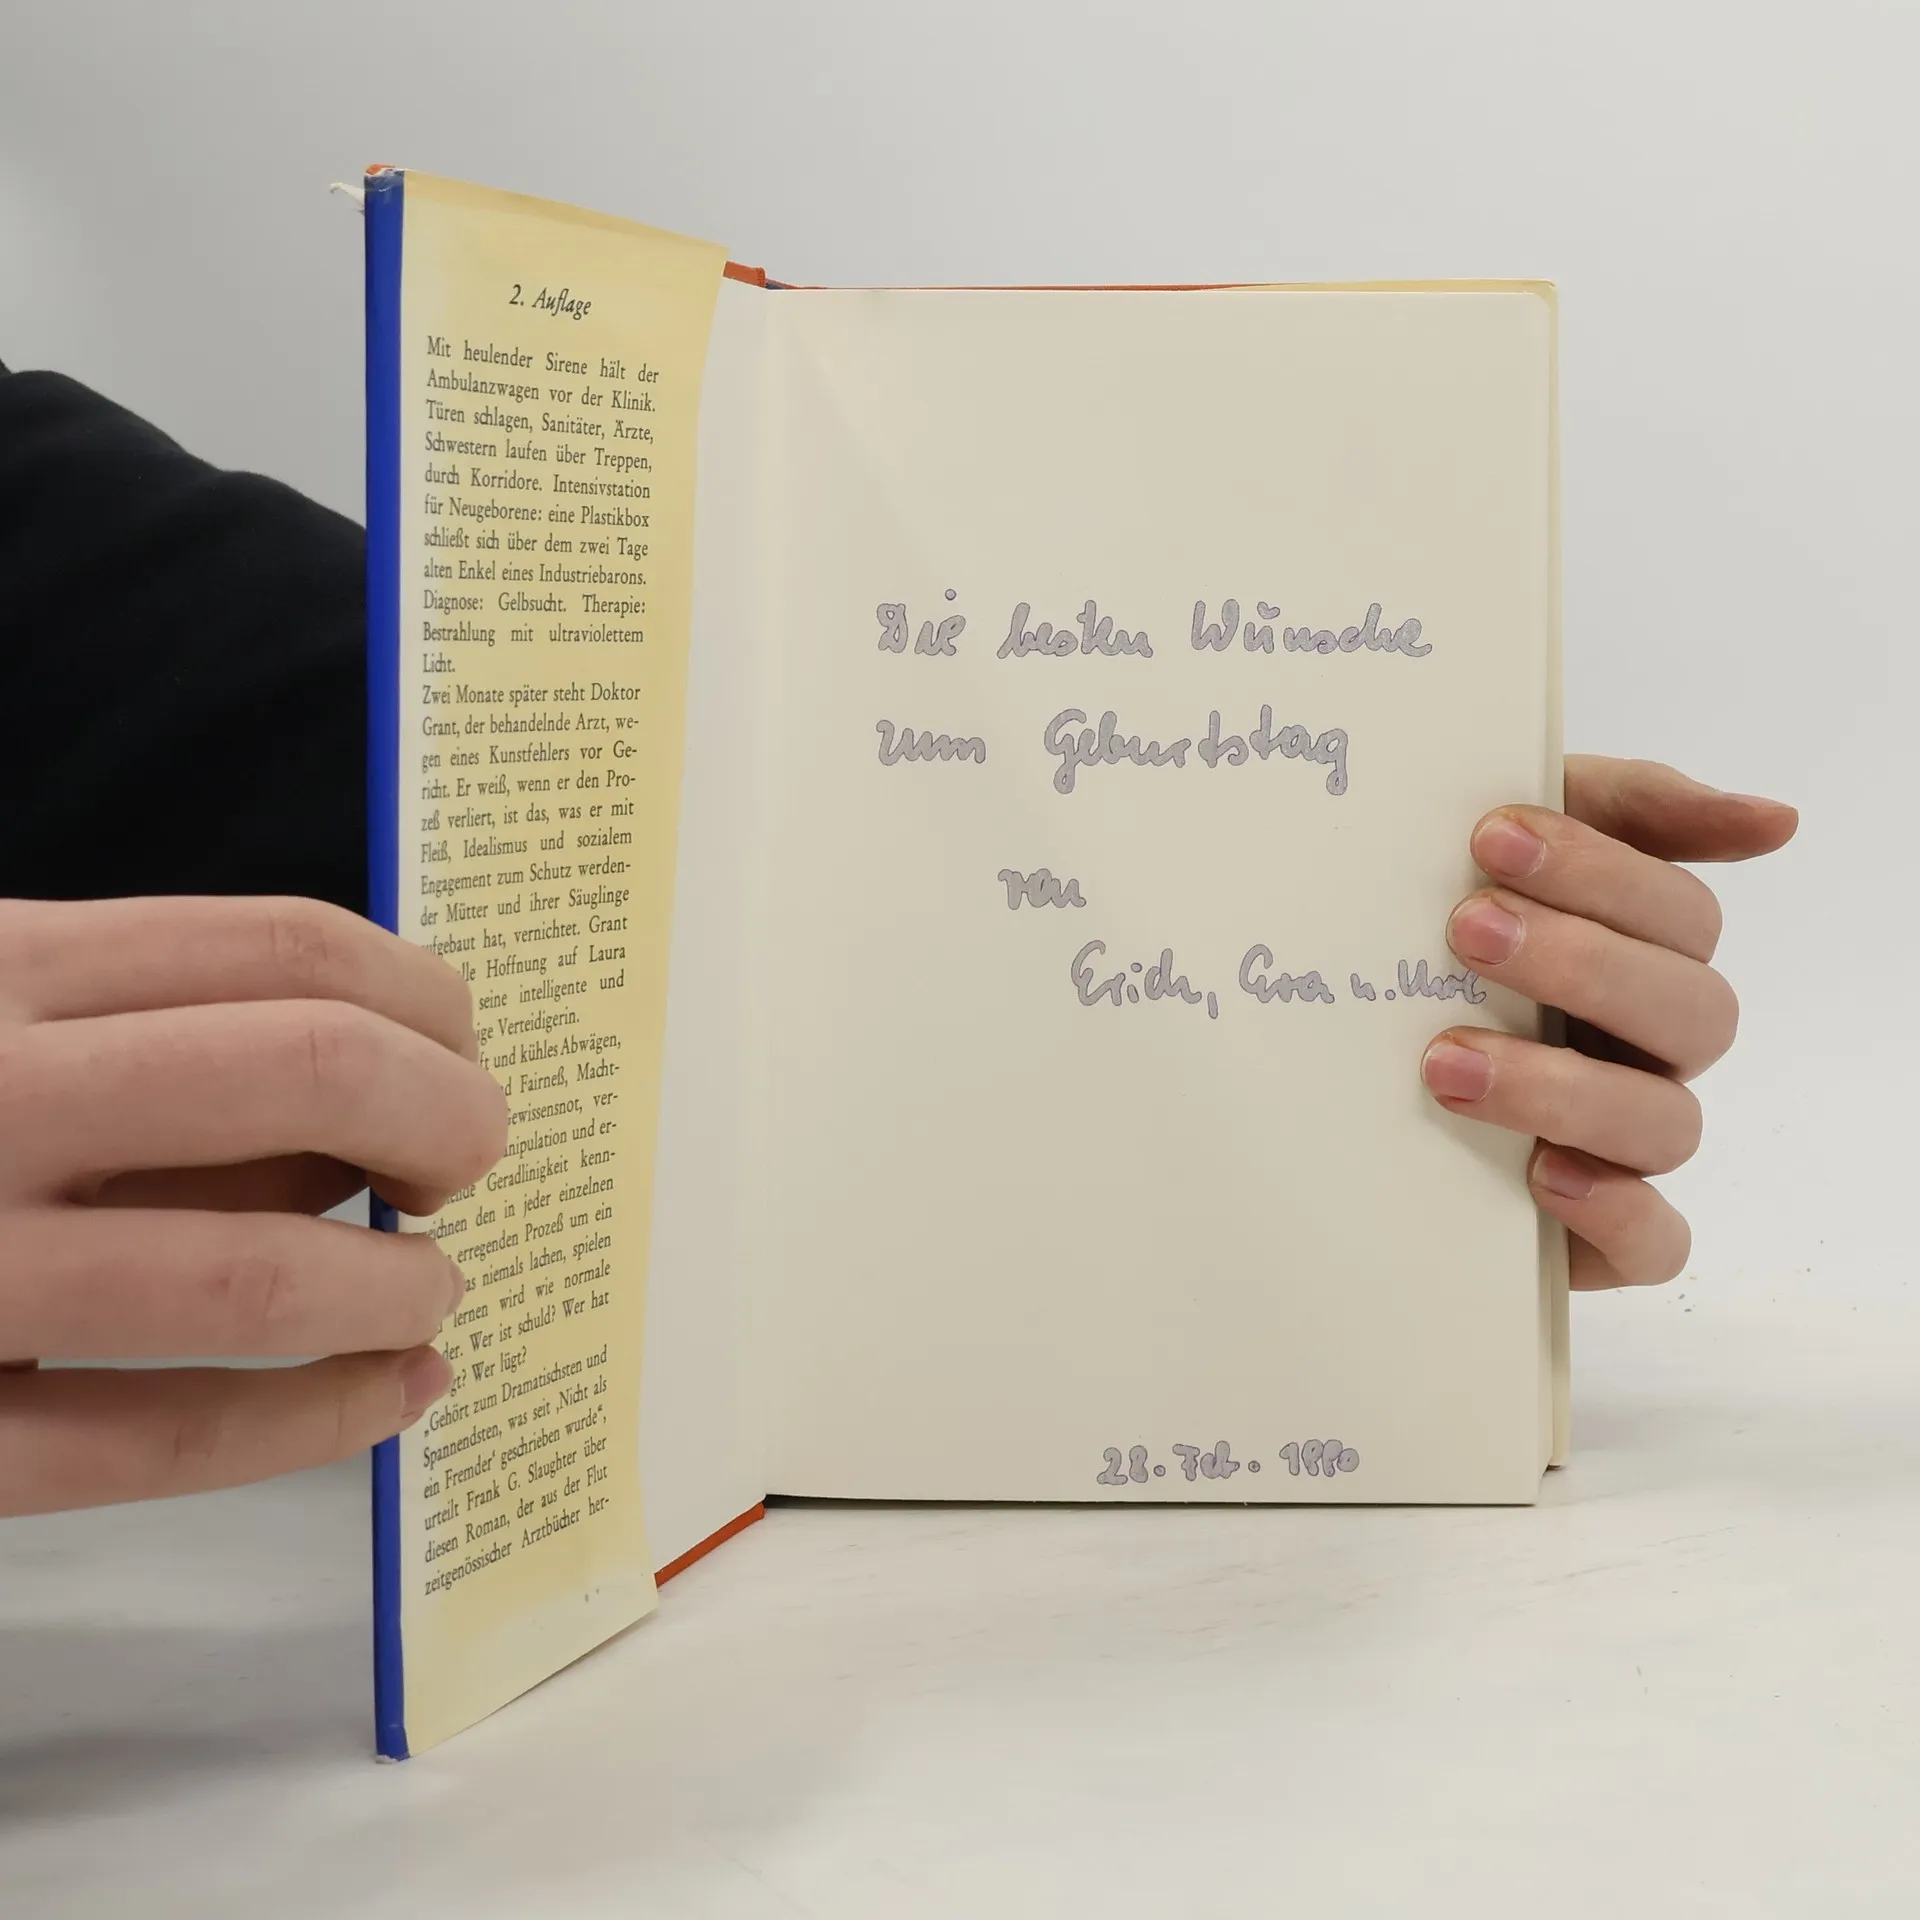 2. Auflage
Mit heulender Sirene hält der
Ambulanzwagen vor der Klinik.
Türen schlagen, Sanitäter, Ärzte,
Schwestern laufen über Treppen,
durch Korridore. Intensivstation
für Neugeborene: eine Plastikbox
schließt sich über dem zwei Tage
alten Enkel eines Industriebarons.
Diagnose: Gelbsucht. Therapie:
Bestrahlung mit ultraviolettem
Licht.
Zwei Monate später steht Doktor
Grant, der behandelnde Arzt, we-
gen eines Kunstfehlers vor Ge-
richt. Er weiß, wenn er den Pro-
zeß verliert, ist das, was er mit
Fleiß, Idealismus und sozialem
Engagement zum Schutz werden-
der Mütter und ihrer Säuglinge
ufgebaut hat, vernichtet. Grant
lle Hoffnung auf Laura
seine intelligente und
ige Verteidigerin.
ft und kühles Abwägen,
d Fairneß, Macht-
Gewissensnot, ver-
nipulation und er-
ende Geradlinigkeit kenn-
eichnen den in jeder einzelnen
erregenden Prozeß um ein
as niemals lachen, spielen
lernen wird wie normale
der. Wer ist schuld? Wer hat
gt? Wer lügt?
„Gehört zum Dramatischsten und
Spannendsten, was seit ‚Nicht als
ein Fremder‘ geschrieben wurde“,
urteilt Frank G. Slaughter über
diesen Roman, der aus der Flut
zeitgenössischer Arztbücher her-
Die besten Wünsche
zum Geburtstag
von
Erich, Eva u.
28. Feb. 1990